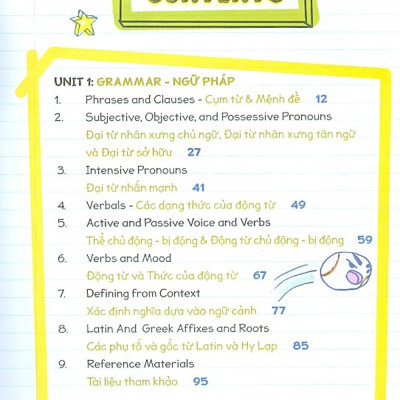 UNIT 1: GRAMMAR - NGỮ PHÁP
1. Phrases and Clauses - Cụm từ & Mệnh đề 12
2. Subjective, Objective, and Possessive Pronouns
Đại từ nhân xưng chủ ngữ, Đại từ nhân xưng tân ngữ
và Đại từ sở hữu 27
3. Intensive Pronouns
Đại từ nhấn mạnh 41
4. Verbals - Các dạng thức của động từ 49
5. Active and Passive Voice and Verbs
Thể chủ động - bị động & Động từ chủ động - bị động 59
6. Verbs and Mood
Động từ và Thức của động từ 67
7. Defining from Context
Xác định nghĩa dựa vào ngữ cảnh 77
8. Latin And Greek Affixes and Roots
Các phụ tố và gốc từ Latin và Hy Lạp 85
9. Reference Materials
Tài liệu tham khảo 95